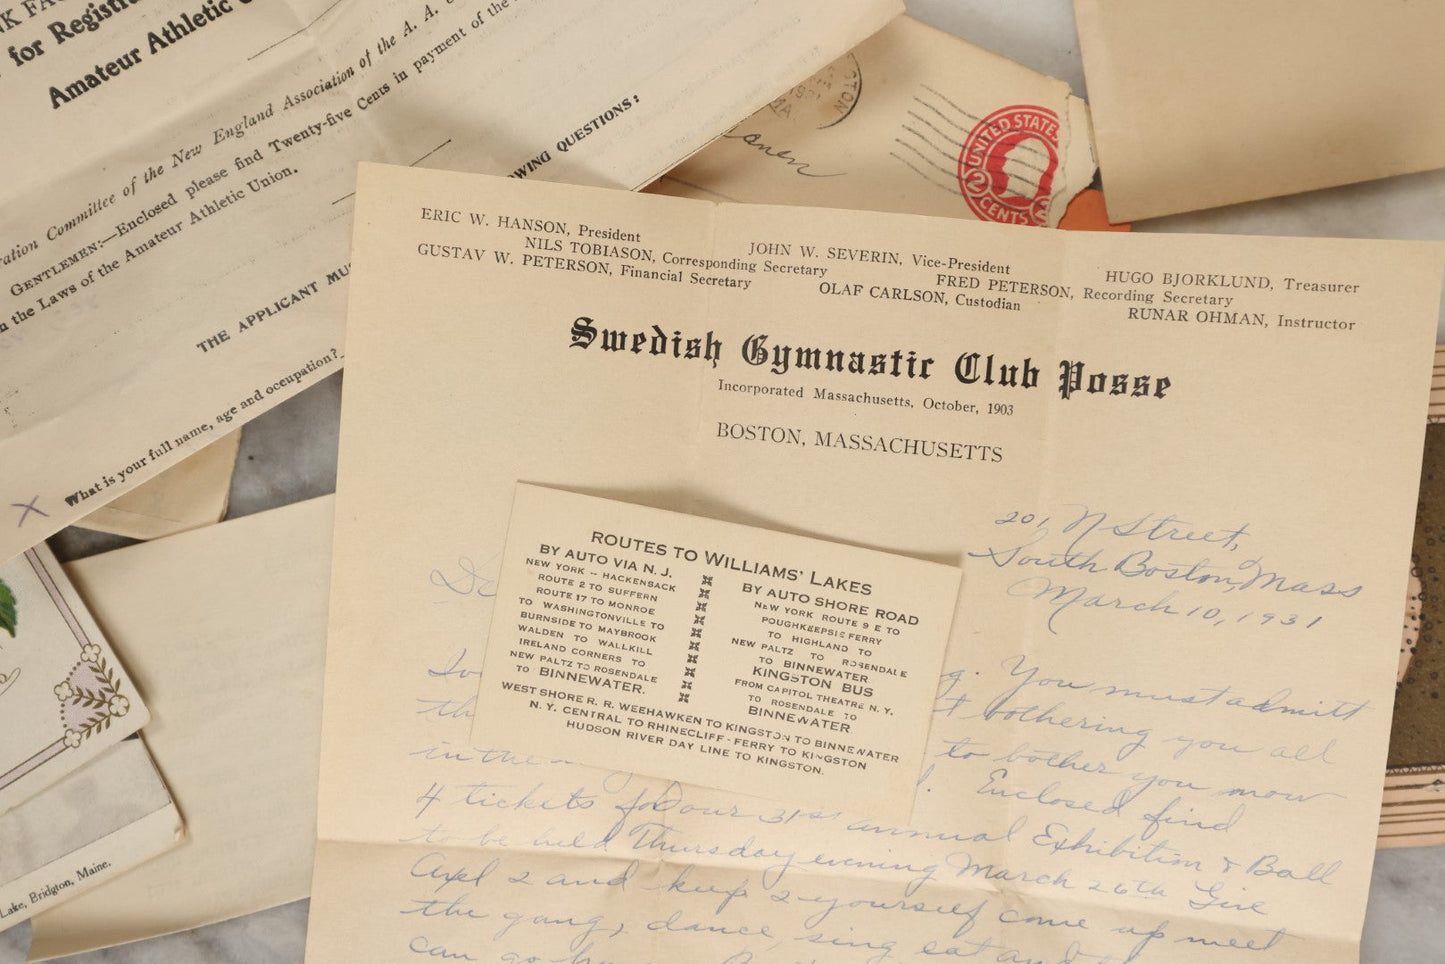 for Registra
Amateur Athletic
ation Committee of the New England Association of the A. A.
GENTLEMEN:—Enclosed please find Twenty-five Cents in payment of the
n the Laws of the Amateur Athletic Union.
THE APPLICANT MU
OWING QUESTIONS:
What is your full name, age and occupation?
X
UNITED STATE
2
CENTS
ERIC W. HANSON, President
JOHN W. SEVERIN, Vice-President
HUGO BJORKLUND, Treasurer
NILS TOBIASON, Corresponding Secretary
FRED PETERSON, Recording Secretary
GUSTAV W. PETERSON, Financial Secretary
OLAF CARLSON, Custodian
RUNAR OHMAN, Instructor
Swedish Gymnastic Club Posse
Incorporated Massachusetts, October, 1903
BOSTON, MASSACHUSETTS
201 N Street,
South Boston, Mass
March 10, 1931
ROUTES TO WILLIAMS' LAKES
BY AUTO VIA N. J.
NEW YORK -- HACKENSACK
ROUTE 2 TO SUFFERN
ROUTE 17 TO MONROE
TO WASHINGTONVILLE TO
BURNSIDE TO MAYBROOK
WALDEN TO WALLKILL
IRELAND CORNERS TO
NEW PALTZ TO ROSENDALE
TO BINNEWATER.
BY AUTO SHORE ROAD
NEW YORK ROUTE 9 E TO
POUGHKEEPSIE FERRY
TO HIGHLAND TO
NEW PALTZ TO ROSENDALE
TO BINNEWATER
KINGSTON BUS
FROM CAPITOL THEATRE N. Y.
TO ROSENDALE TO
BINNEWATER
WEST SHORE R. R. WEEHAWKEN TO KINGSTON TO BINNEWATER
N. Y. CENTRAL TO RHINECLIFF - FERRY TO KINGSTON
HUDSON RIVER DAY LINE TO KINGSTON.
De
g. You must admitt
th t bothering you all
in the to bother you now
Enclosed find
4 tickets for our 31st annual Exhibition & Ball
to be held Thursday evening March 26th Give
Axel 2 and keep 2 yourself come up meet
the gang, dance, sing eat and
can go
Lake, Bridgton, Maine.